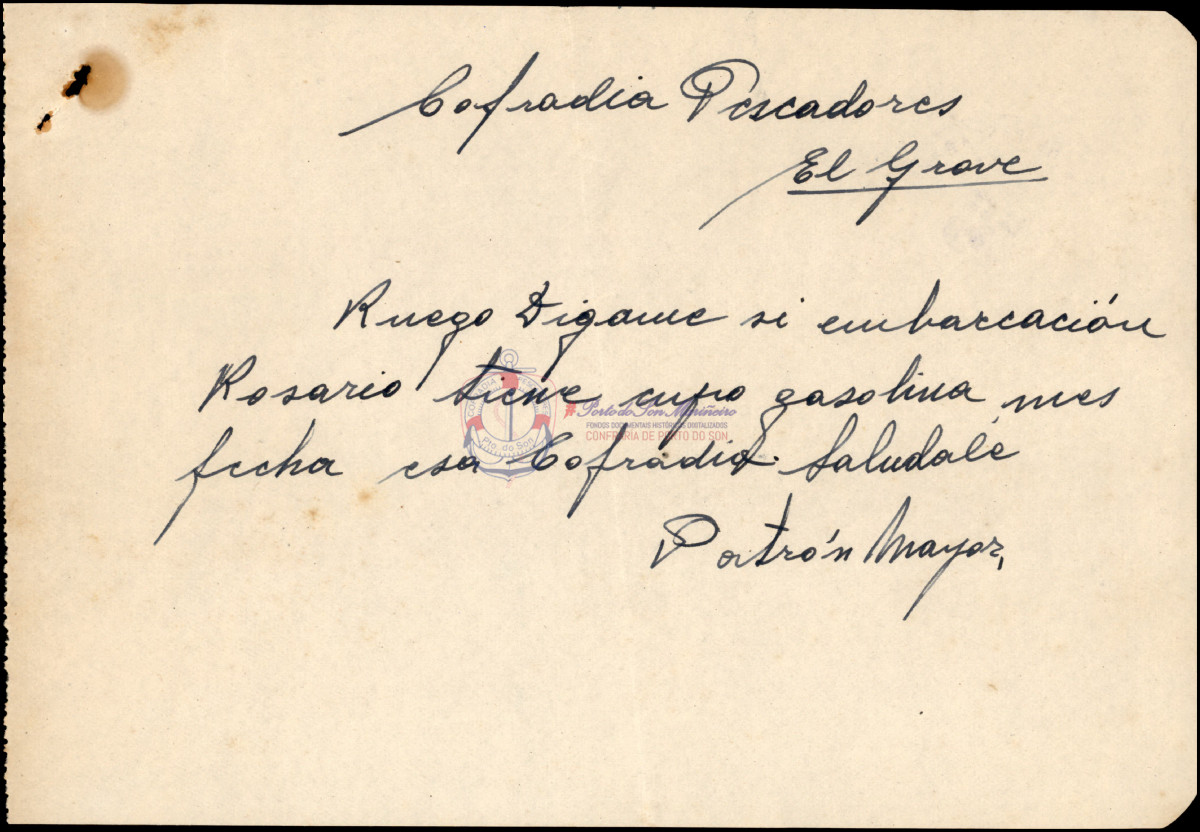 Cofradia Pescadores
El Grove
Ruego Digame si embarcación
Rosario tiene cupo gasolina mes
fecha esa Cofradia. Saludale
Patrón Mayor,
#Porto do Son Mariñeiro
FONDOS DOCUMENTAIS HISTÓRICOS DIGITALIZADOS
CONFRARÍA DE PORTO DO SON
Pto. do Son